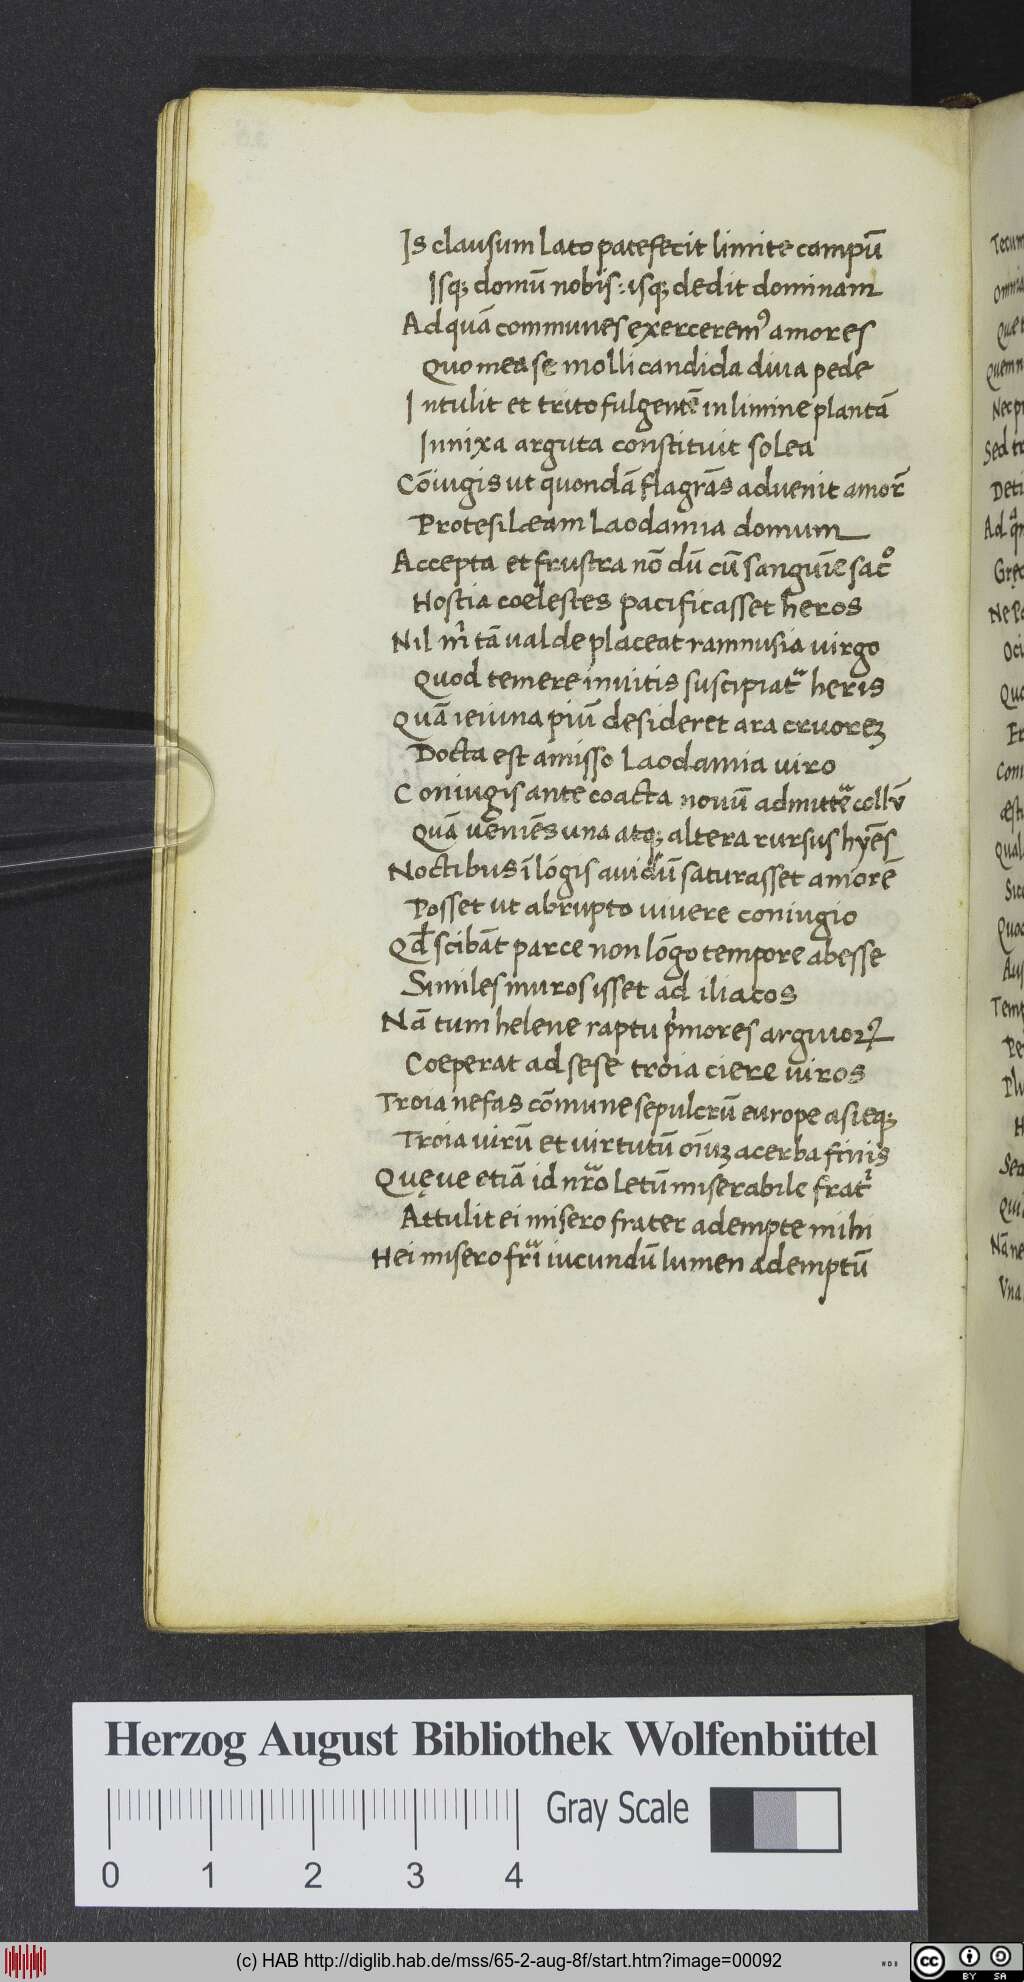 Is clausum lato patefecit limite campū
Isq; domū nobis: isq; dedit dominam
Ad quā communes exercerem⁹ amores
Quo mea se molli candida diua pede
Intulit et trito fulgentē in limine plantā
Innixa arguta constituit solea
Cōiugis ut quondā flagrās aduenit amor̄
Protesilæam Laodamia domum
Accepta et frustra nō dū cū sanguīe sac͛o
Hostia coelestes pacificasset heros
Nil m̄ tā ualde placeat ramnusia uirgo
Quod temere inuitis suscipiat᷑ heris
Quā ieiuna piū desideret ara cruorē
Docta est amisso Laodamia uiro
Coniugis ante coacta nouū admittē collū
Quā ueniēs una atq; altera rursus hyēs
Noctibus ī lōgis auidū saturasset amorē
Posset ut abrupto uiuere coniugio
Qđ scibāt parce non lōgo tempore abesse
Si miles muros isset ad iliacos
Nā tum helene raptu p̄mores arguiorꝝ
Coeperat ad sese troia ciere uiros
Troia nefas cōmune sepulcrū europe asieq;
Troia uirū et uirtutū oīuꝫ acerba finis
Quęue etiā id nr̄o letū miserabile frat͛
Attulit ei misero frater adempte mihi
Hei misero fr̄i iucundū lumen ademptū
Tecum
Quę
Nec p
Sed tr
Deti
Ad q
Ne Pa
Oci
Quo
Et
Com
æst
Qual
Sic
Quo
Aus
Temp
Pe
Sed
Qui
Nā ne
Vna
Herzog August Bibliothek Wolfenbüttel
Gray Scale
0 1 2 3 4
(c) HAB http://diglib.hab.de/mss/65-2-aug-8f/start.htm?image=00092
WDB
cc BY SA